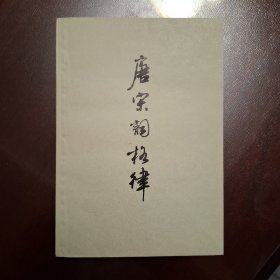 唐宋词格律